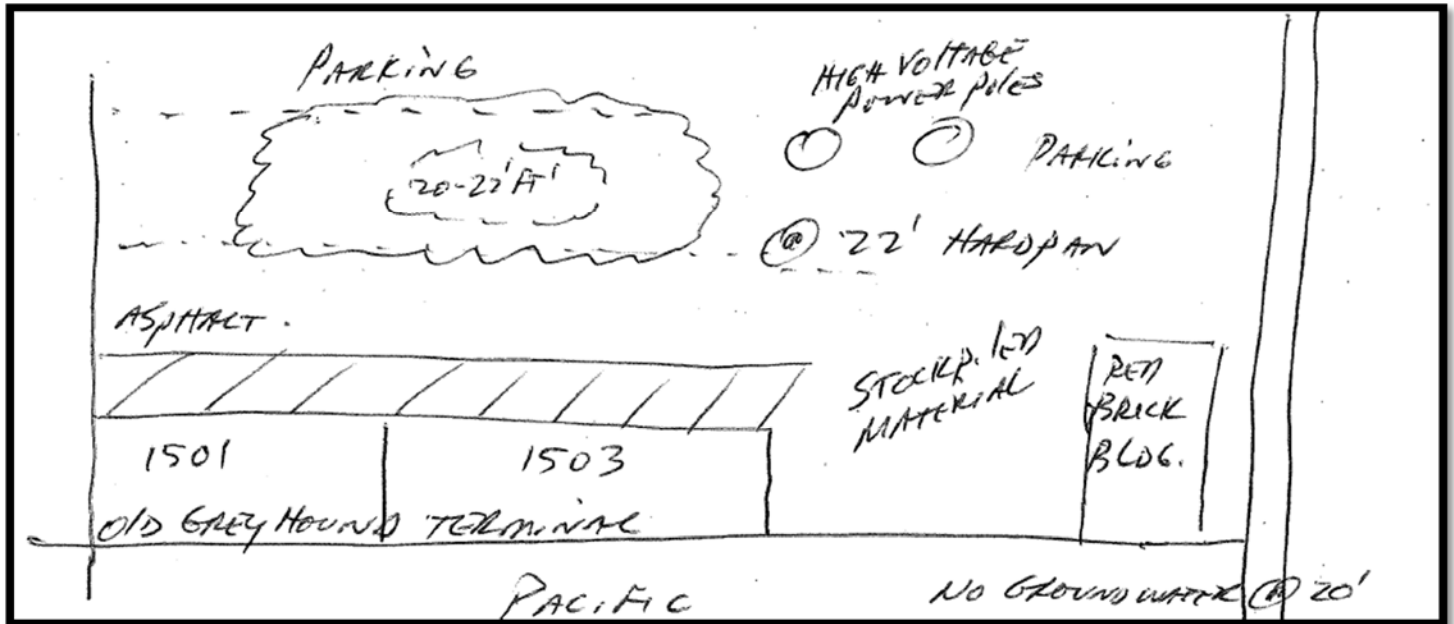 PARKING
HIGH VOLTAGE
POWER POLES
20-22'FT'
PARKING
@ 22' HARDPAN
ASPHALT.
STOCKPILED
MATERIAL
RED
BRICK
BLDG.
1501
1503
OLD GREY HOUND TERMINAL
PACIFIC
NO GROUNDWATER @ 20'